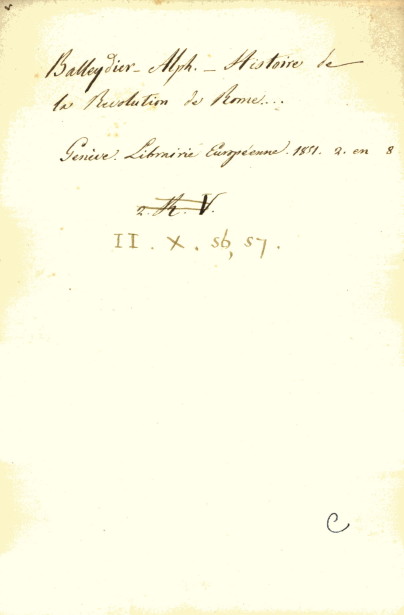 Balleydier - Alph. - Histoire de
la Revolution de Rome...
Genève. Librairie Européenne. 1851. 2. en 8
2. R. V.
II. X. 56, 57.
C